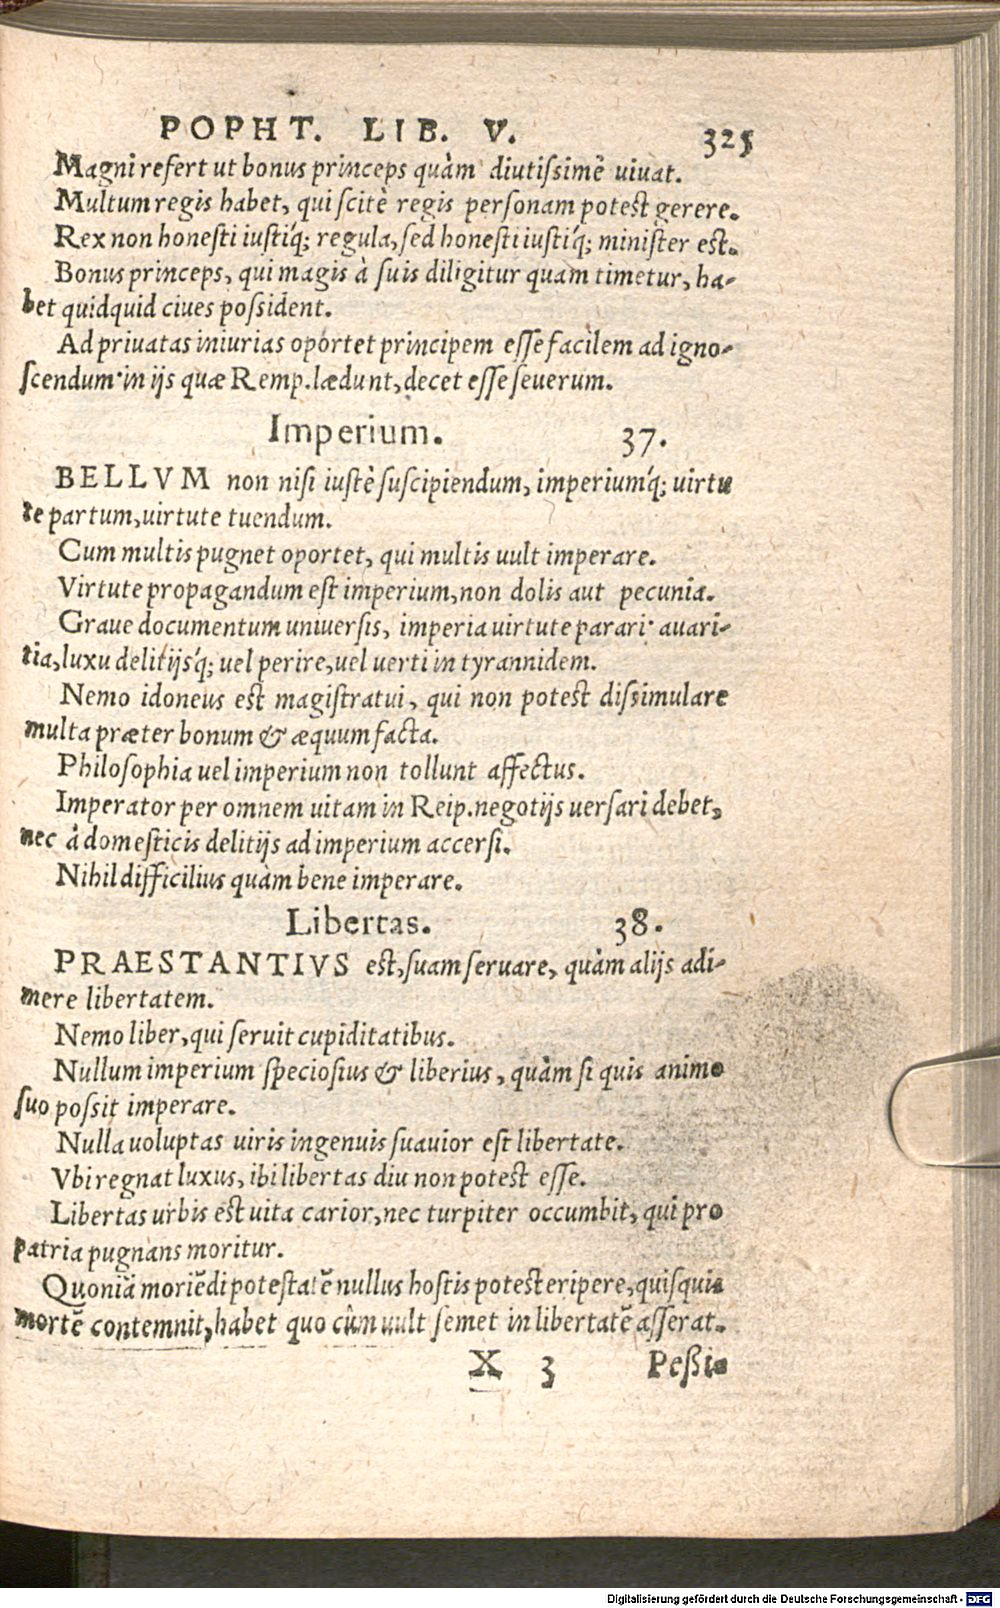 POPHT. LIB. V. 325
Magni refert ut bonus princeps quàm diutiſsimè uiuat.
Multum regis habet, qui ſcitè regis perſonam poteſt gerere.
Rex non honeſti iuſtiq́; regula, ſed honeſti iuſtiq́; miniſter eſt.
Bonus princeps, qui magis à ſuis diligitur quam timetur, ha-
bet quidquid ciues poſsident.
Ad priuatas iniurias oportet principem eſſe facilem ad igno-
ſcendum· in ijs quæ Remp. lædunt, decet eſſe ſeuerum.
Imperium. 37.
BELLVM non niſi iuſtè ſuſcipiendum, imperiumq́; uirtu
te partum, uirtute tuendum.
Cum multis pugnet oportet, qui multis uult imperare.
Virtute propagandum eſt imperium, non dolis aut pecunia.
Graue documentum uniuerſis, imperia uirtute parari· auari-
tia, luxu delitijsq́; uel perire, uel uerti in tyrannidem.
Nemo idoneus eſt magiſtratui, qui non poteſt diſsimulare
multa præter bonum & æquum facta.
Philoſophia uel imperium non tollunt affectus.
Imperator per omnem uitam in Reip. negotijs uerſari debet,
nec à domeſticis delitijs ad imperium accerſi.
Nihil difficilius quàm bene imperare.
Libertas. 38.
PRAESTANTIVS eſt, ſuam ſeruare, quàm alijs adi-
mere libertatem.
Nemo liber, qui ſeruit cupiditatibus.
Nullum imperium ſpecioſius & liberius, quàm ſi quis animo
ſuo poſsit imperare.
Nulla uoluptas uiris ingenuis ſuauior eſt libertate.
Vbi regnat luxus, ibi libertas diu non poteſt eſſe.
Libertas urbis eſt uita carior, nec turpiter occumbit, qui pro
patria pugnans moritur.
Quoniã moriẽdi poteſtatẽ nullus hoſtis poteſt eripere, quiſquis
mortẽ contemnit, habet quo cùm uult ſemet in libertatẽ aſſerat.
X 3 Peßi-
Digitalisierung gefördert durch die Deutsche Forschungsgemeinschaft - DFG